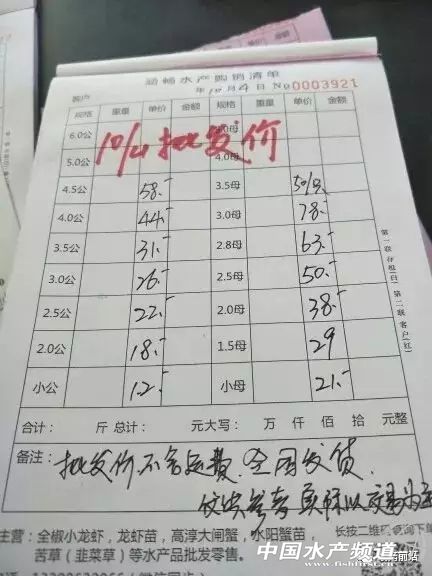 涵畅水产购销清单
客户 年 10月 4日 No 0003921
规格 重量 单价 金额 规格 重量 单价 金额
6.0公 4.0母
5.0公 4.0母
10/4 批发价
4.5公 58.- 3.5母
4.0公 44.- 3.0母 78.-
3.5公 31.- 2.8母 63.-
3.0公 26.- 2.5母 50.-
2.5公 22.- 2.0母 38.-
2.0公 18.- 1.5母 29
小公 12.- 小母 21.-
合计: 斤 总计: 元大写: 万 仟 佰 拾 元整
备注: 批发价不含运费.全国发货.
仅供参考 实际以交易为
第一联存根(白) 第二联客户(红)
全椒小龙虾,龙虾苗,高淳大闸蟹,水阳蟹苗,
苦草(韭菜草)等水产品批发零售。
长按二维码查询下单
中国水产频道
www.fishfirst.cn